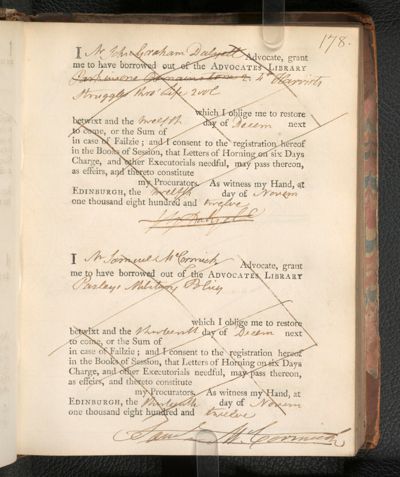 178.
I Mr John Graham Dalyell Advocate, grant
me to have borrowed out of the ADVOCATES LIBRARY
4° Harriots
Struggles thro' Life 2 vol
which I oblige me to restore
betwixt and the twelfth day of Decem next
to come, or the Sum of
in case of Failzie; and I consent to the registration hereof
in the Books of Session, that Letters of Horning on six Days
Charge, and other Executorials needful, may pass thereon,
as effeirs, and thereto constitute
my Procurators. As witness my Hand, at
EDINBURGH, the twelfth day of Novem
one thousand eight hundred and twelve
I Mr Samuel McCormick Advocate, grant
me to have borrowed out of the ADVOCATES LIBRARY
Pasley's Military Policy
which I oblige me to restore
betwixt and the thirteenth day of Decem next
to come, or the Sum of
in case of Failzie; and I consent to the registration hereof
in the Books of Session, that Letters of Horning on six Days
Charge, and other Executorials needful, may pass thereon,
as effeirs, and thereto constitute
my Procurators. As witness my Hand, at
EDINBURGH, the thirteenth day of Novem
one thousand eight hundred and twelve
Saml McCormick